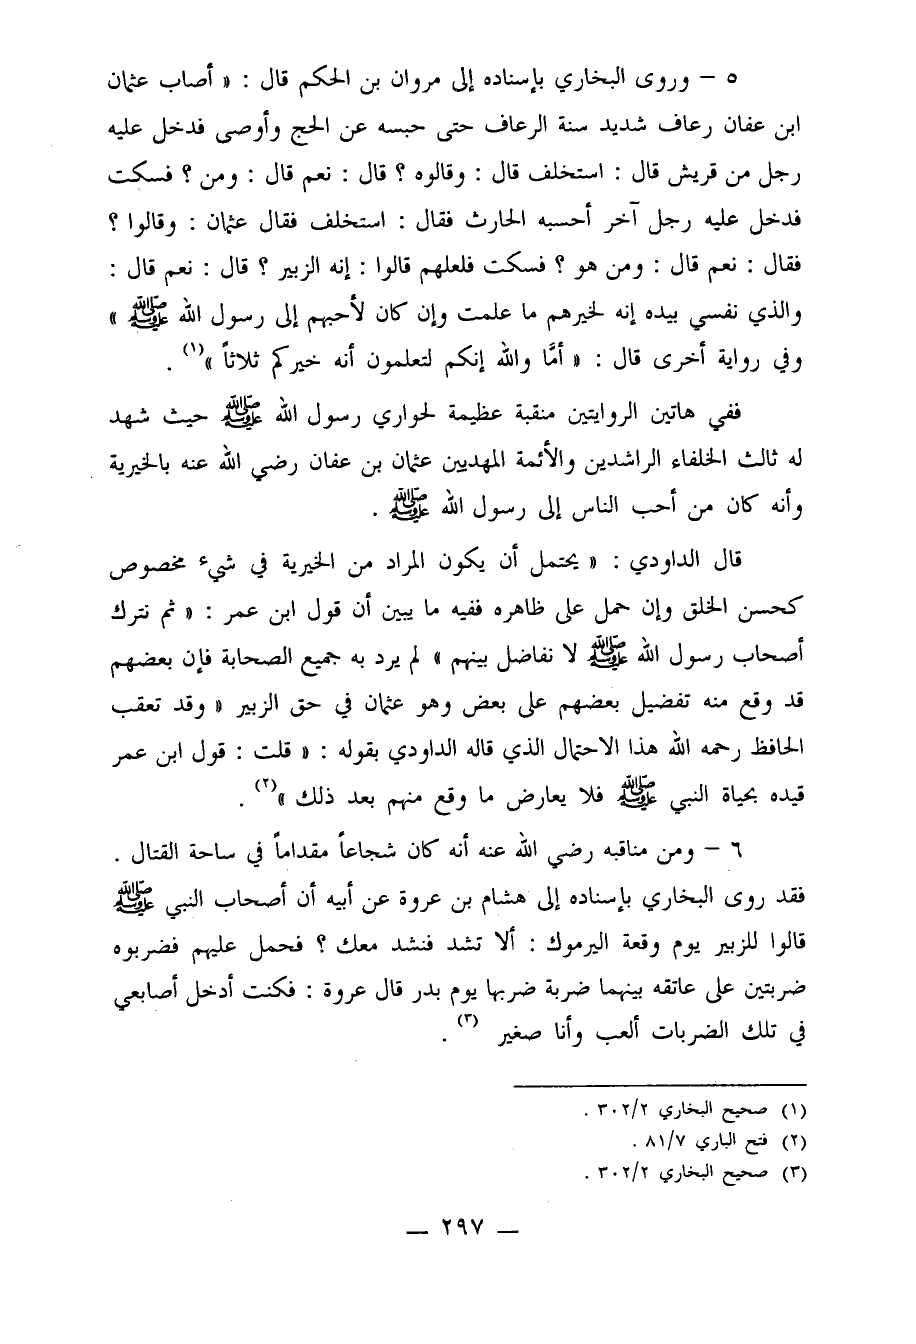 ٥ – وروى البخاري بإسناده إلى مروان بن الحكم قال : « أصاب عثمان
ابن عفان رعاف شديد سنة الرعاف حتى حبسه عن الحج وأوصى فدخل عليه
رجل من قريش قال : استخلف قال : وقالوه ؟ قال : نعم قال : ومن ؟ فسكت
فدخل عليه رجل آخر أحسبه الحارث فقال : استخلف فقال عثمان : وقالوا ؟
فقال : نعم قال : ومن هو ؟ فسكت فلعلهم قالوا : إنه الزبير ؟ قال : نعم قال :
والذي نفسي بيده إنه لخيرهم ما علمت وإن كان لأحبهم إلى رسول الله ﷺ »
وفي رواية أخرى قال : « أمَّا والله إنكم لتعلمون أنه خيركم ثلاثاً »(١) .
ففي هاتين الروايتين منقبة عظيمة لحواري رسول الله ﷺ حيث شهد
له ثالث الخلفاء الراشدين والأئمة المهديين عثمان بن عفان رضي الله عنه بالخيرية
وأنه كان من أحب الناس إلى رسول الله ﷺ .
قال الداودي : « يحتمل أن يكون المراد من الخيرية في شيء مخصوص
كحسن الخلق وإن حمل على ظاهره ففيه ما يبين أن قول ابن عمر : « ثم نترك
أصحاب رسول الله ﷺ لا نفاضل بينهم » لم يرد به جميع الصحابة فإن بعضهم
قد وقع منه تفضيل بعضهم على بعض وهو عثمان في حق الزبير « وقد تعقب
الحافظ رحمه الله هذا الاحتمال الذي قاله الداودي بقوله : « قلت : قول ابن عمر
قيده بحياة النبي ﷺ فلا يعارض ما وقع منهم بعد ذلك »(٢) .
٦ – ومن مناقبه رضي الله عنه أنه كان شجاعاً مقداماً في ساحة القتال .
فقد روى البخاري بإسناده إلى هشام بن عروة عن أبيه أن أصحاب النبي ﷺ
قالوا للزبير يوم وقعة اليرموك : ألا تشد فنشد معك ؟ فحمل عليهم فضربوه
ضربتين على عاتقه بينهما ضربة ضربها يوم بدر قال عروة : فكنت أدخل أصابعي
في تلك الضربات ألعب وأنا صغير (٣) .
(١) صحيح البخاري ٣٠٢/٢ .
(٢) فتح الباري ٨١/٧ .
(٣) صحيح البخاري ٣٠٢/٢ .
— ٢٩٧ —